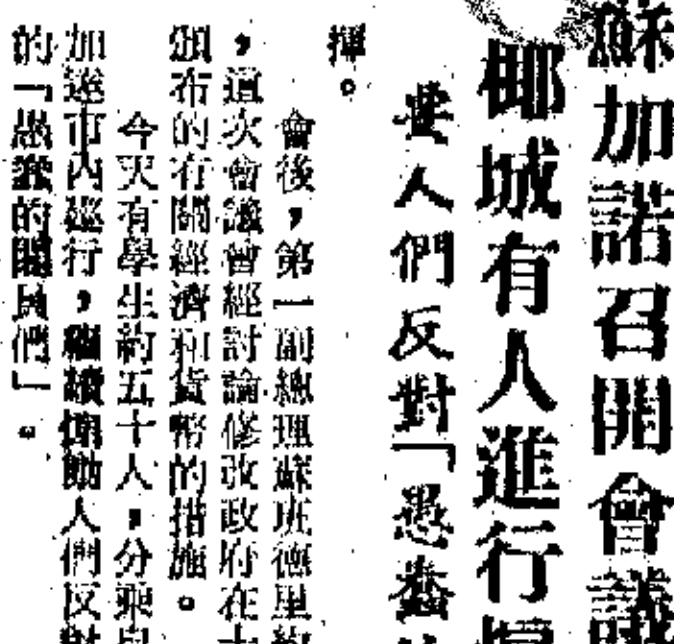 蘇加諾召開會議
椰城有人進行
要人們反對「愚蠢
揮。
會後，第一副總理蘇班德里
，這次會議曾經討論修改政府在
頒布的有關經濟和貨幣的措施。
今天有學生約五十人，分乘
加達市內遊行，繼續煽動人們反對
的「愚蠢的閣員們」。